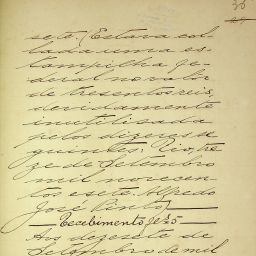 36
sete. (Estava col-
lada uma es-
tampilha fe-
deral no valor
de tresentos reis,
devidamente
inutilisada
pelos dizeres se-
guintes: Rio, tre-
ze de Setembro
mil novecen-
tos e sete. Alfredo
José Pinto)
Recebimento
Aos dezesete de
Setembro de mil